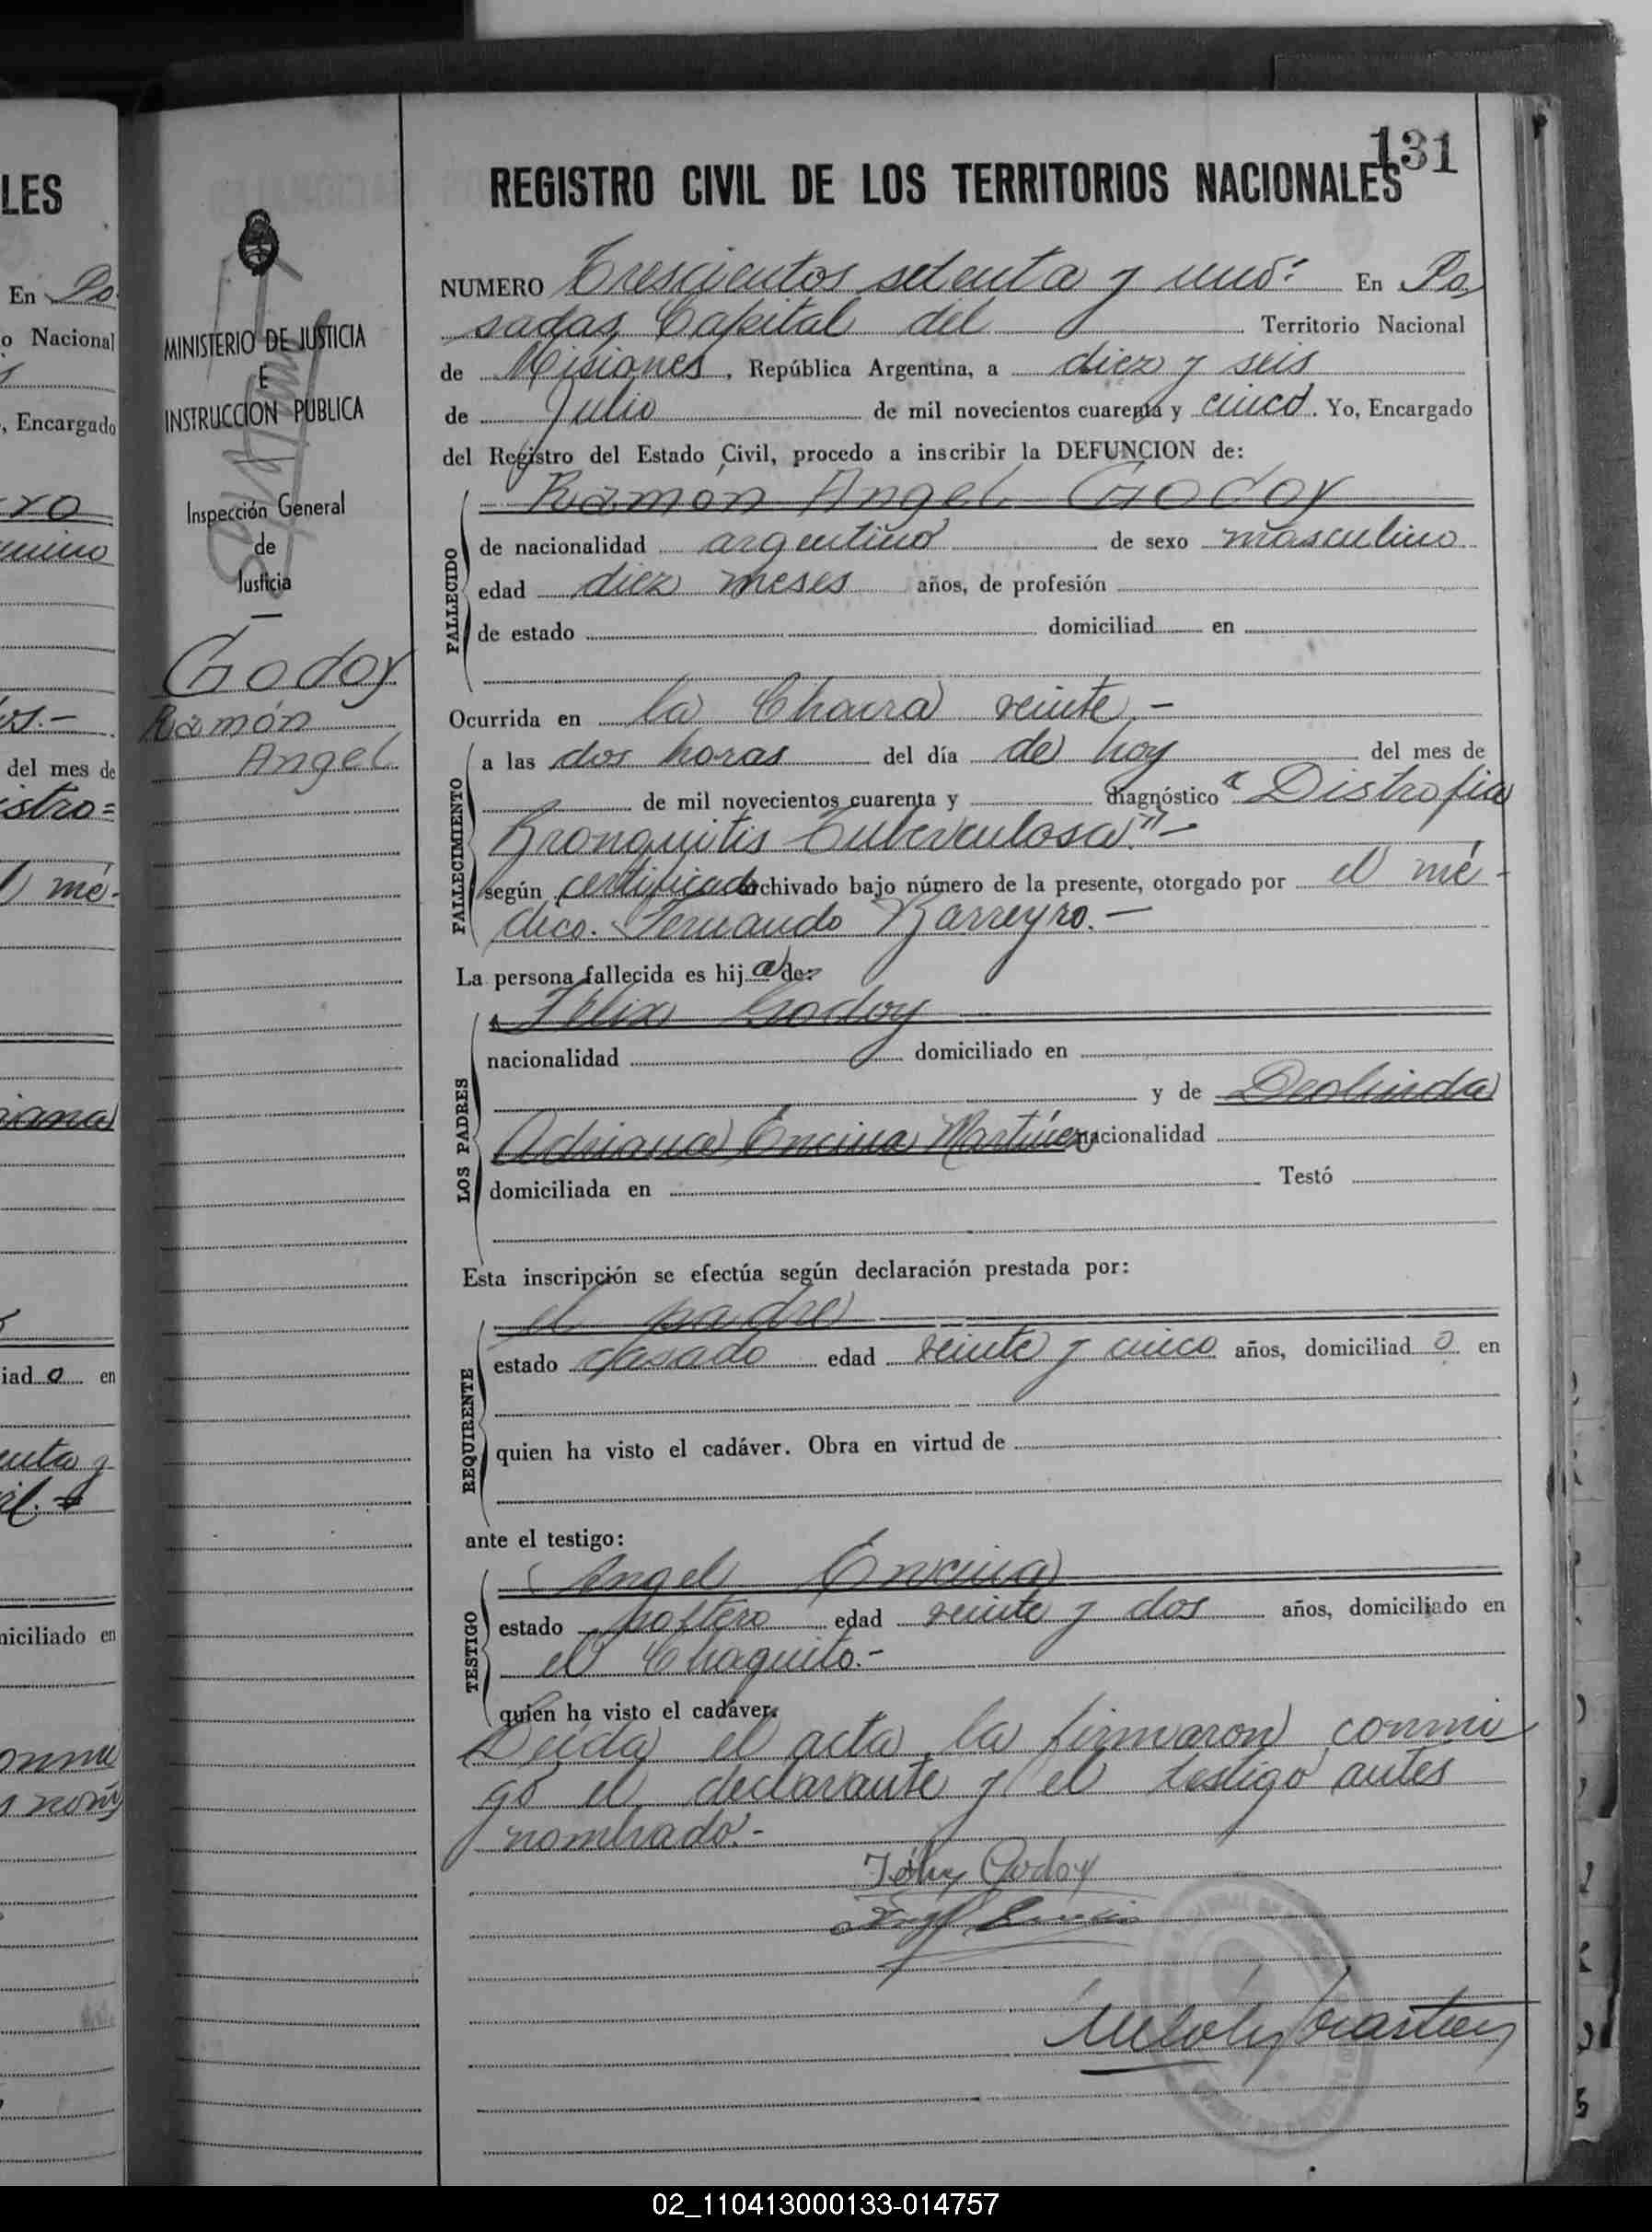 131
REGISTRO CIVIL DE LOS TERRITORIOS NACIONALES
MINISTERIO DE JUSTICIA
E
INSTRUCCION PUBLICA
Inspección General
de
Justicia
Godoy
Ramón
Angel
NUMERO Trescientos setenta y uno: En Po,
sadas Capital del Territorio Nacional
de Misiones, República Argentina, a diez y seis
de Julio de mil novecientos cuarenta y cinco. Yo, Encargado
del Registro del Estado Civil, procedo a inscribir la DEFUNCION de:
FALLECIDO
Ramón Angel Godoy
de nacionalidad argentino de sexo masculino
edad diez meses años, de profesión
de estado domiciliad en
Ocurrida en la Chacra veinte.-
FALLECIMIENTO
a las dos horas del día de hoy del mes de
de mil novecientos cuarenta y diagnóstico "Distrofia
Bronquitis Tuberculosa".-
según certificado archivado bajo número de la presente, otorgado por el mé-
dico. Fernando Barreyro.-
La persona fallecida es hij o de:
LOS PADRES
Félix Godoy
nacionalidad domiciliado en
y de Deolinda
Adriana Encina Martínez nacionalidad
domiciliada en Testó
Esta inscripción se efectúa según declaración prestada por:
REQUIRENTE
el padre
estado casado edad veinte y cinco años, domiciliad o en
quien ha visto el cadáver. Obra en virtud de
ante el testigo:
TESTIGO
Angel Encina
estado soltero edad veinte y dos años, domiciliado en
el Chaquito.-
quien ha visto el cadáver.
Leída el acta, la firmaron conmi
go el declarante y el testigo antes
nombrado.-
Félix Godoy
LES
En Po
o Nacional
, Encargado
del mes de
istro=
mé-
iad o en
niciliado en
02_110413000133-014757